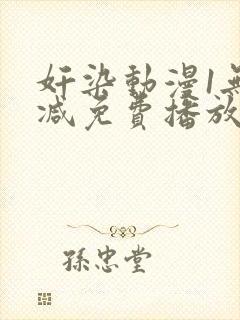 奸染動漫1無
減免費播放
孫忠堂